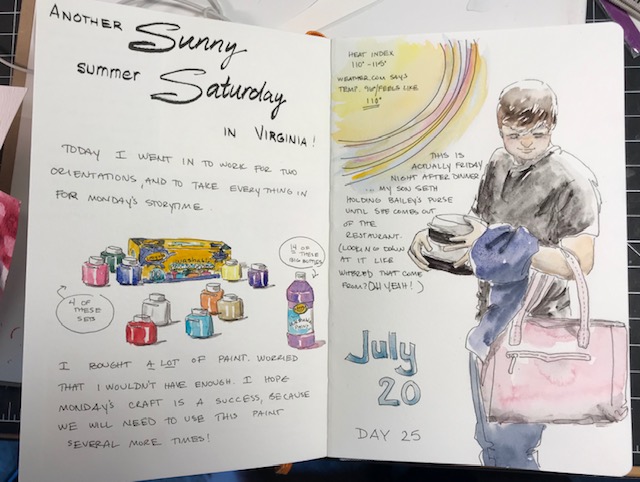 ANOTHER Sunny
summer Saturday
IN VIRGINIA!
TODAY I WENT IN TO WORK FOR TWO
ORIENTATIONS, AND TO TAKE EVERYTHING IN
FOR MONDAY'S STORYTIME.
4 OF
THESE
SETS
OF
THESE
BIG BOTTLES
Washable
Washable
Paint
I BOUGHT A LOT OF PAINT. WORRIED
THAT I WOULDN'T HAVE ENOUGH. I HOPE
MONDAY'S CRAFT IS A SUCCESS, BECAUSE
WE WILL NEED TO USE THIS PAINT
SEVERAL MORE TIMES!
HEAT INDEX
110° - 115°
WEATHER.COM SAYS
TEMP. 96°/FEELS LIKE
110°
THIS IS
ACTUALLY FRIDAY
NIGHT AFTER DINNER
... MY SON SETH
HOLDING BAILEY'S PURSE
UNTIL SHE COMES OUT
OF THE
RESTAURANT.
(LOOKING DOWN
AT IT LIKE
WHERE'D THAT COME
FROM? OH YEAH!)
July
20
DAY 25